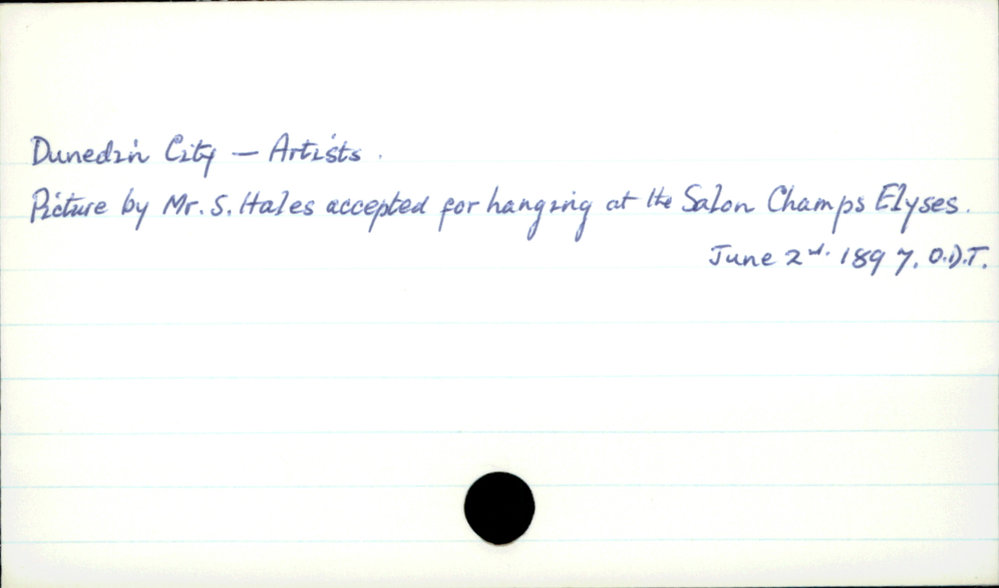 Dunedin City – Artists.
Picture by Mr. S. Hales accepted for hanging at the Salon Champs Elyses.
June 2nd. 1897. O.D.T.